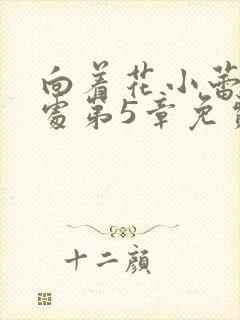 向着花小蕾
处第5章免费
十二颜